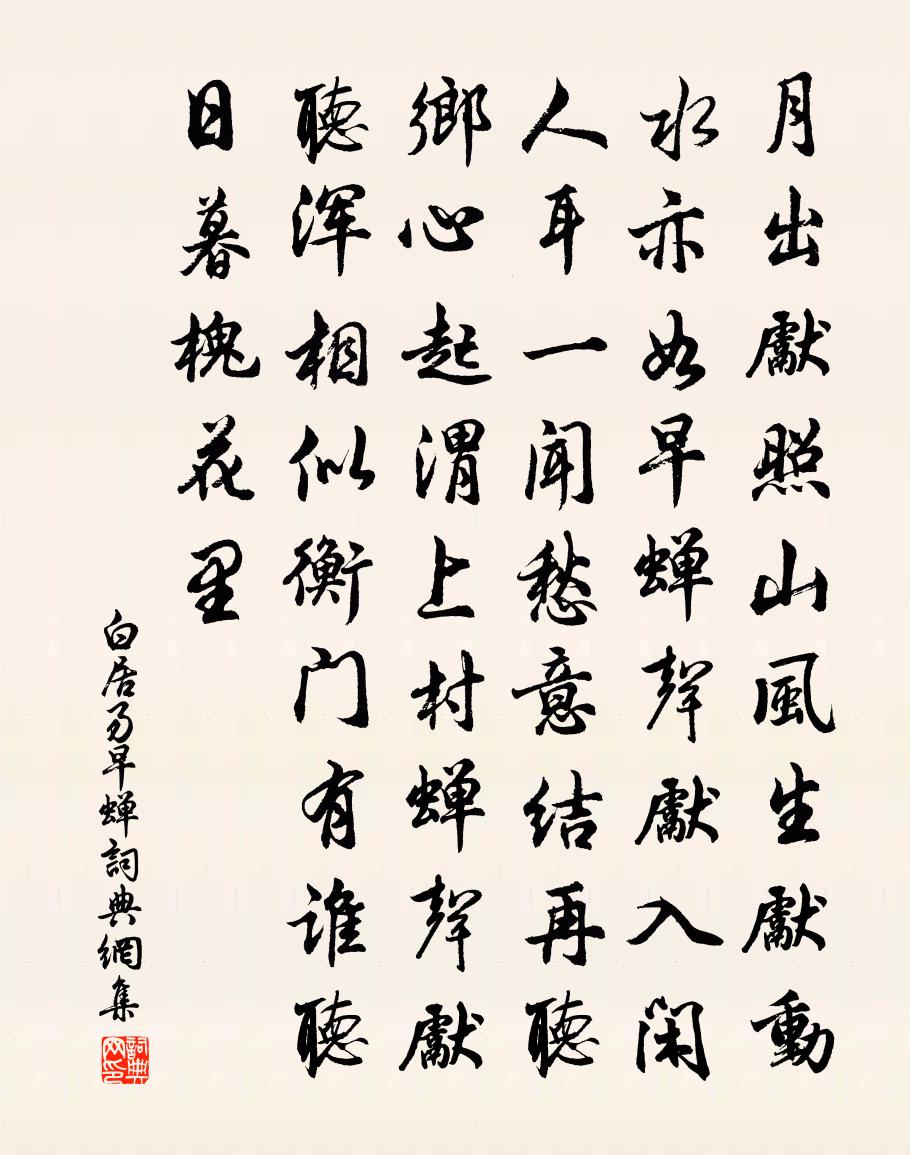 月出獻照山風生獻動
水亦如早蝉聲獻入闲
人耳一闻愁意結再聽
鄉心起渭上村蝉聲獻
聽浑相似衡门有誰聽
日暮槐花里
白居易早蝉詞典網集
詞典网印